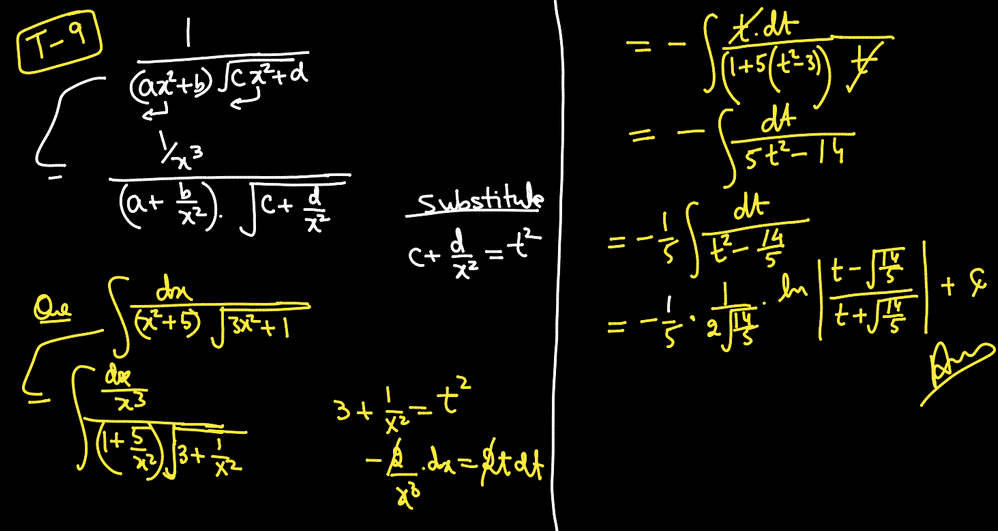 T-9
1/((ax²+b)√(cx²+d))
(1/x³)/((a+b/x²).√(c+d/x²))
Substitute
c+d/x²=t²
Que ∫dx/((x²+5)√(3x²+1))
∫(dx/x³)/((1+5/x²)√(3+1/x²))
3+1/x²=t²
-2/x³.dx=2tdt
= -∫t.dt/((1+5(t²-3))t)
= -∫dt/(5t²-14)
= -1/5∫dt/(t²-14/5)
= -1/5·1/(2√(14/5))·ln|(t-√(14/5))/(t+√(14/5))|+c
Ans